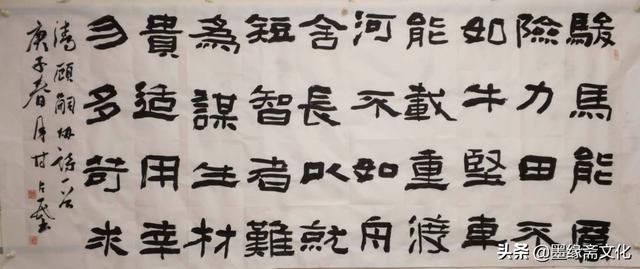 駿馬能歷
險力田不
如牛堅車
能載重渡
河不如舟
舍長以就
短智者難
為謀生材
貴適用幸
勿多苛求
清顧嗣協詩一首
庚子春月
头条 @墨缘斋文化